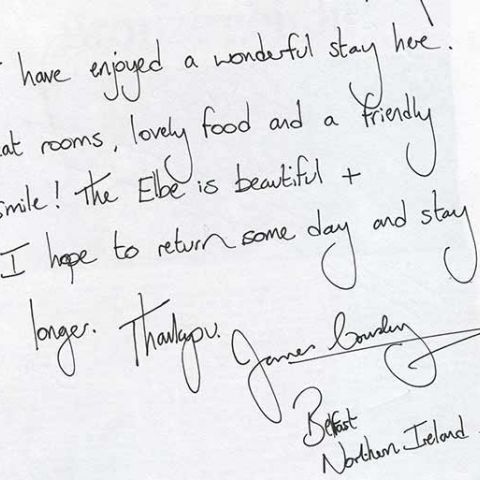 have enjoyed a wonderful stay here!
at rooms, lovely food and a friendly
smile! The Elbe is beautiful +
I hope to return some day and stay
longer. Thankyou.
James
Belfast
Northern Ireland.